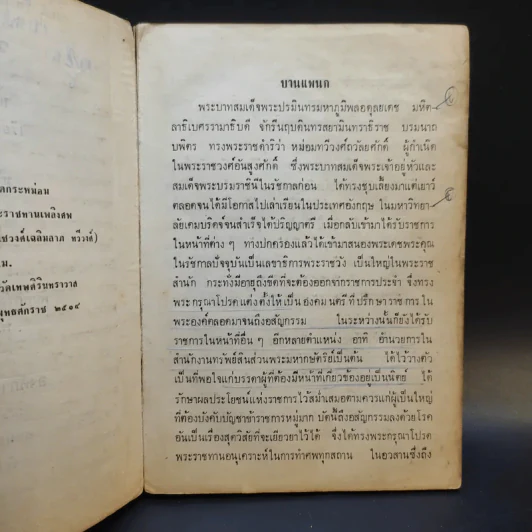 ราชทานเพลิงศพ
ม.
วัดเทพศิรินทราวาส
บานแพนก
พระบาทสมเด็จพระปรมินทรมหาภูมิพลอดุลยเดช มหิต
ลาธิเบศรรามาธิบดี จักรีนฤบดินทรสยามินทราธิราช บรมนาถ
บพิตร ทรงพระดำริว่า หม่อมทวีวงศ์ถวัลยศักดิ์ ผู้กำเนิด
ในราชวงศ์อันสูงศักดิ์ ซึ่งพระบาทสมเด็จพระเจ้าอยู่หัวและ
สมเด็จพระบรมราชินีในรัชกาลก่อน ได้ทรงชุบเลี้ยงมาแต่เยาว์
ตลอดจนได้มีโอกาสไปเล่าเรียนในประเทศอังกฤษ ในมหาวิทยา
ลัยเคมบริดจ์จนสำเร็จได้ปริญญาตรี เมื่อกลับเข้ามาได้รับราชการ
ในหน้าที่ต่าง ๆ ทางปกครองแล้วได้เข้ามาสนองพระเดชพระคุณ
ในรัชกาลปัจจุบันเป็นเลขาธิการพระราชวัง เป็นใหญ่ในพระราช
สำนัก กระทั่งมีอายุถึงขีดที่จะต้องออกจากราชการประจำ จึงทรง
พระกรุณาโปรดแต่งตั้งให้เป็นองคมนตรีที่ปรึกษาราชการใน
พระองค์ตลอดมาจนถึงอสัญกรรม ในระหว่างนั้นก็ยังได้รับ
ราชการในหน้าที่อื่นๆ อีกหลายตำแหน่ง อาทิ อำนวยการใน
สำนักงานทรัพย์สินส่วนพระมหากษัตริย์เป็นต้น ได้ไว้วางตัว
เป็นที่พอใจแก่บรรดาผู้ที่ต้องมีหน้าที่เกี่ยวข้องอยู่เป็นนิตย์ ได้
รักษาผลประโยชน์แห่งราชการไว้สม่ำเสมอตามควรแก่ผู้เป็นใหญ่
ที่ต้องบังคับบัญชาข้าราชการหมู่มาก บัดนี้ถึงอสัญกรรมลงด้วยโรค
อันเป็นเรื่องสุดวิสัยที่จะเยียวยาไว้ได้ จึงได้ทรงพระกรุณาโปรด
พระราชทานอนุเคราะห์ในการทำศพทุกสถาน ในอวสานซึ่งถึง